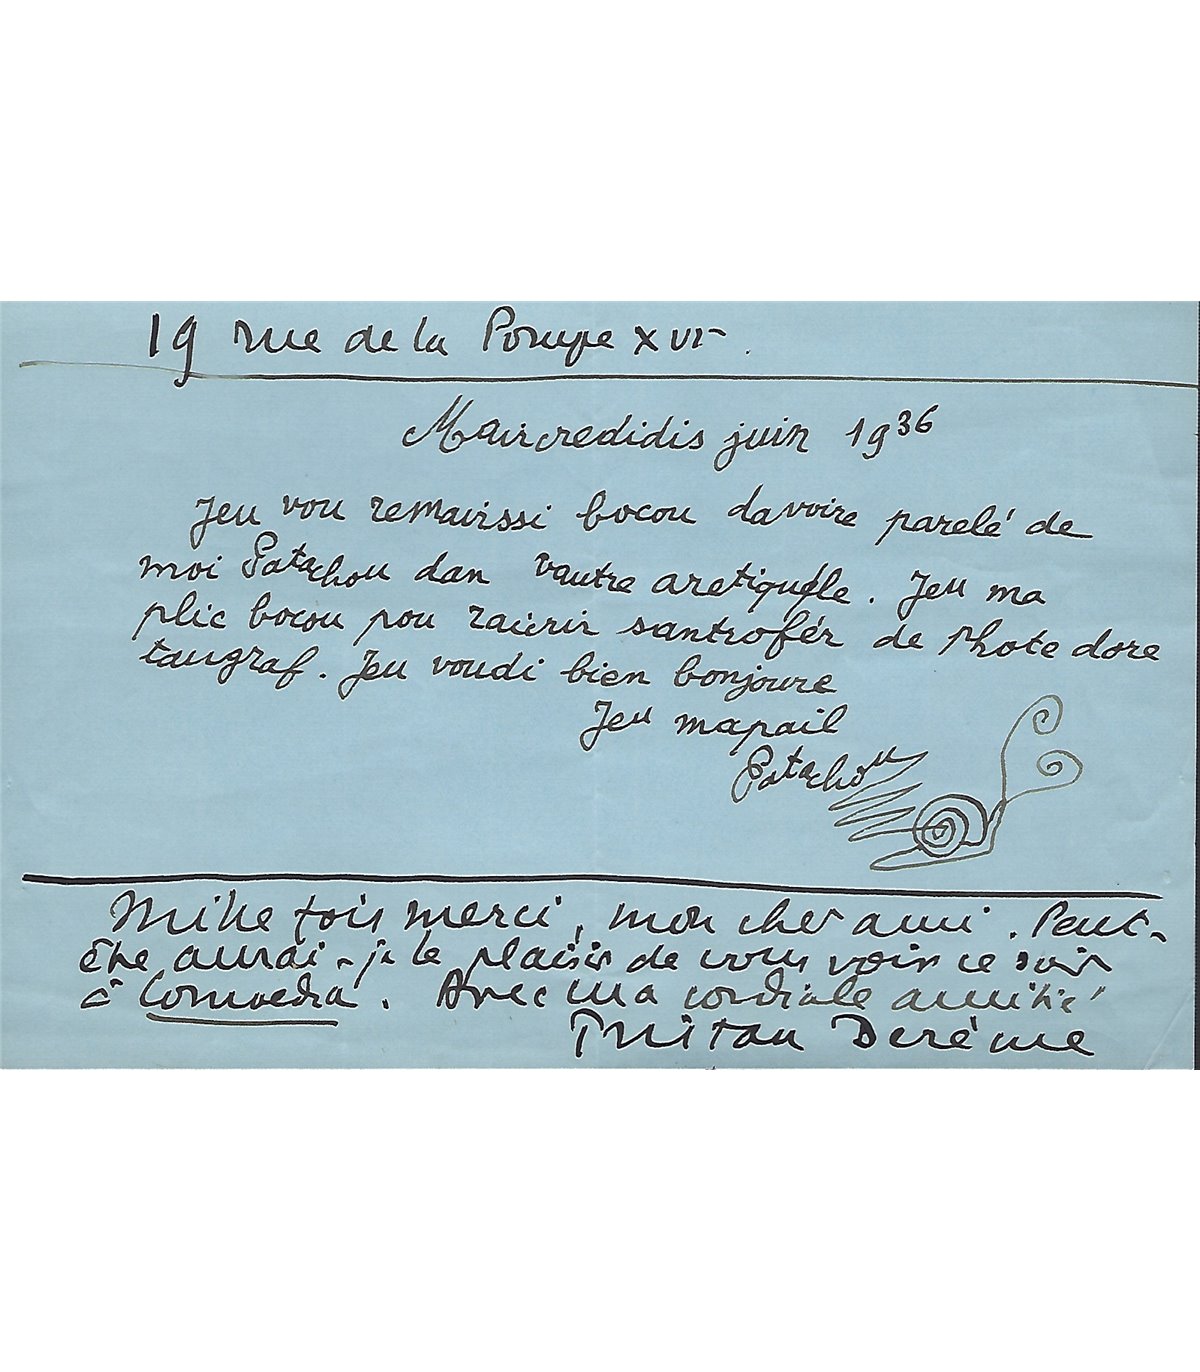 19 rue de la Pompe XVIe.
Maircredidis juin 1936
Jeu vou remairssi bocou davoire parelé de
moi Patachou dan vautre aretiquele. Jeu ma
plic bocou pou raicrir santrofér de phote dore
taugraf. Jeu voudi bien bonjoure
Jeu mapail
Patachou
Mille fois merci, mon cher ami. Peut-
être aurai-je le plaisir de vous voir ce soir
à Comoedia. Avec ma cordiale amitié
Tristan Derème